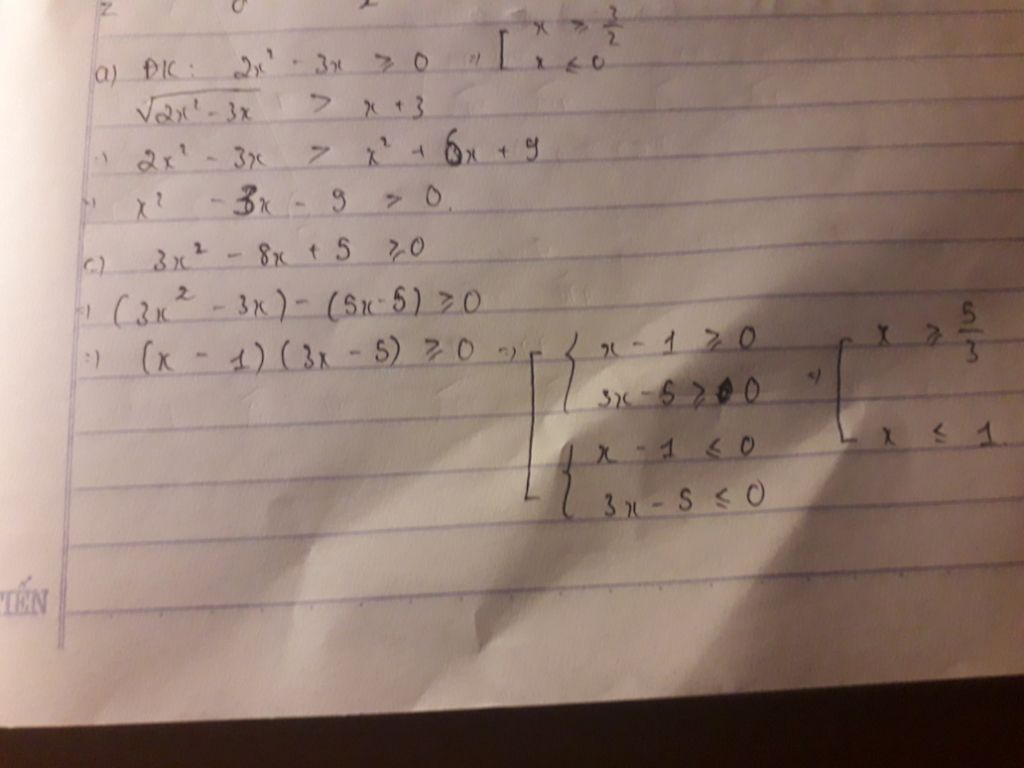 a) ĐK: 2x² - 3x ≥ 0 => [ x ≥ 3/2
x ≤ 0
√2x² - 3x > x + 3
=> 2x² - 3x > x² + 6x + 9
=> x² - 3x - 9 > 0.
c) 3x² - 8x + 5 ≥ 0
=> (3x² - 3x) - (5x - 5) ≥ 0
=> (x - 1)(3x - 5) ≥ 0 => [ { x - 1 ≥ 0
3x - 5 ≥ 0
{ x - 1 ≤ 0
3x - 5 ≤ 0
=> [ x ≥ 5/3
x ≤ 1.
TIẾN